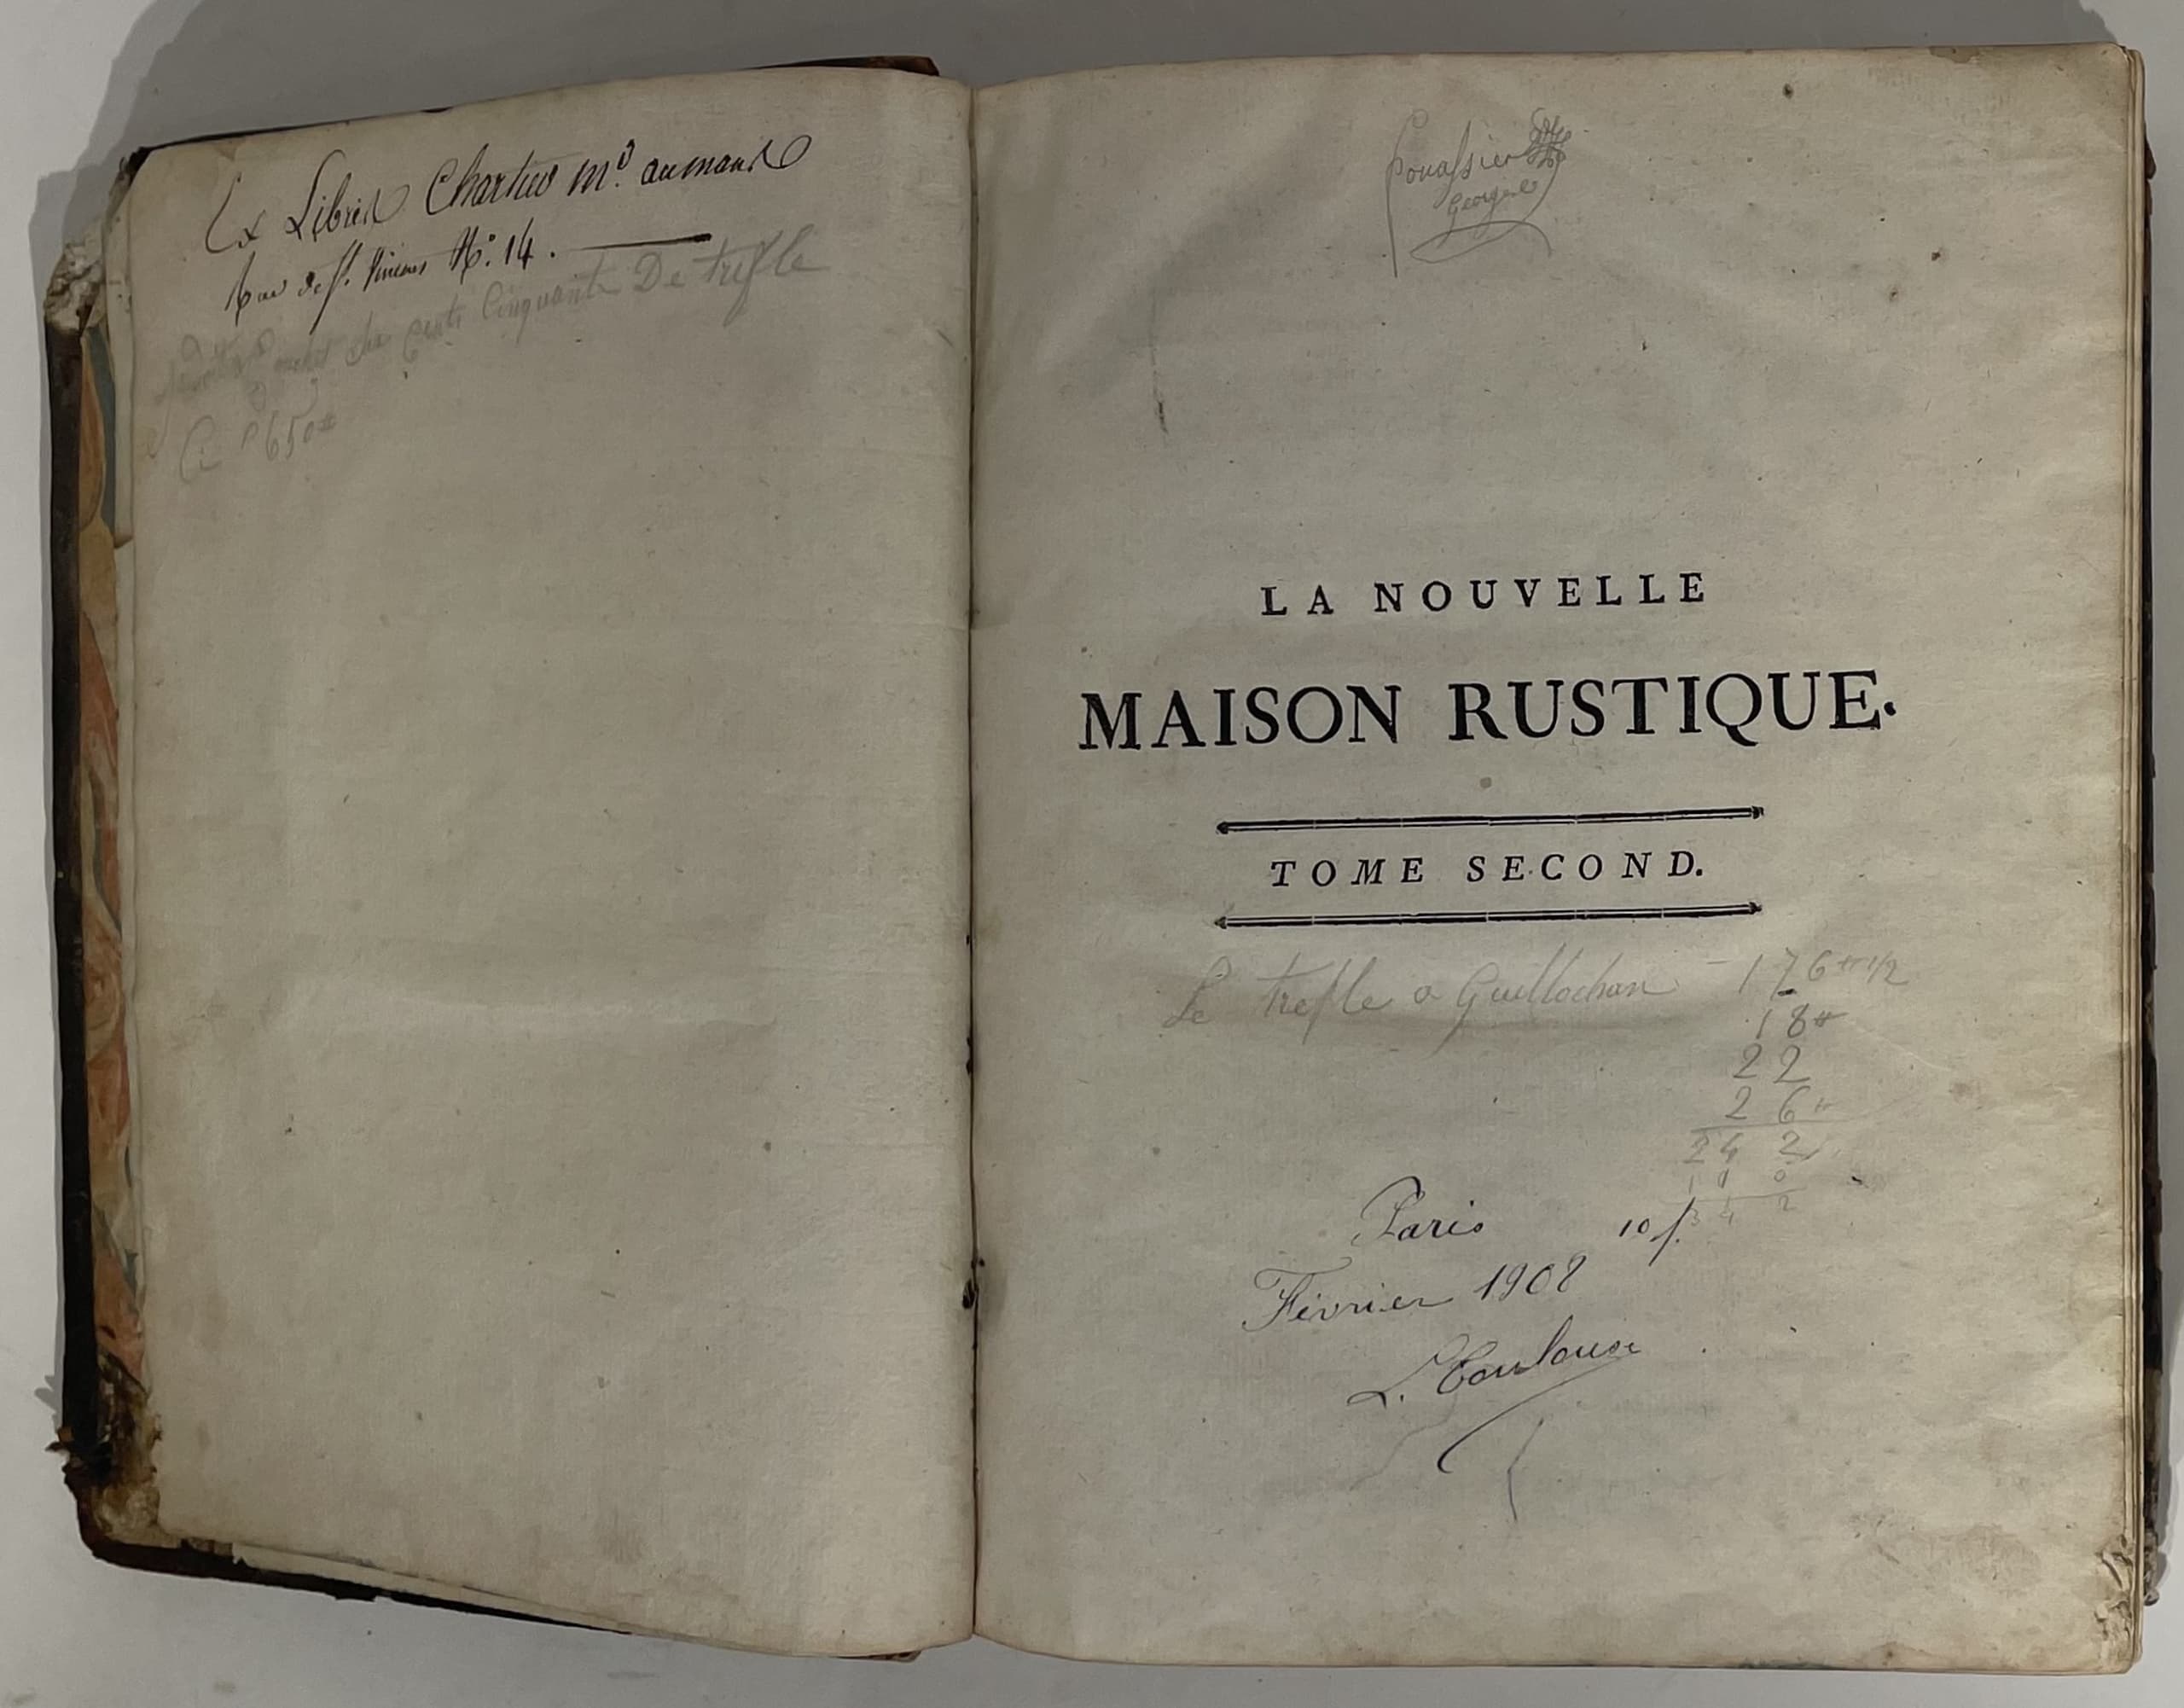 Ex Libris Chartier m.d au mans
Rue de St. Vincent No. 14.
Cents Cinquante De trefle
650#
Georges
LA NOUVELLE
MAISON RUSTIQUE.
TOME SECOND.
Le trefle a Guillochan - 176# 1/2
18#
22
26#
242
100
342
Paris 10 f.
Février 1908
L. Toulouse